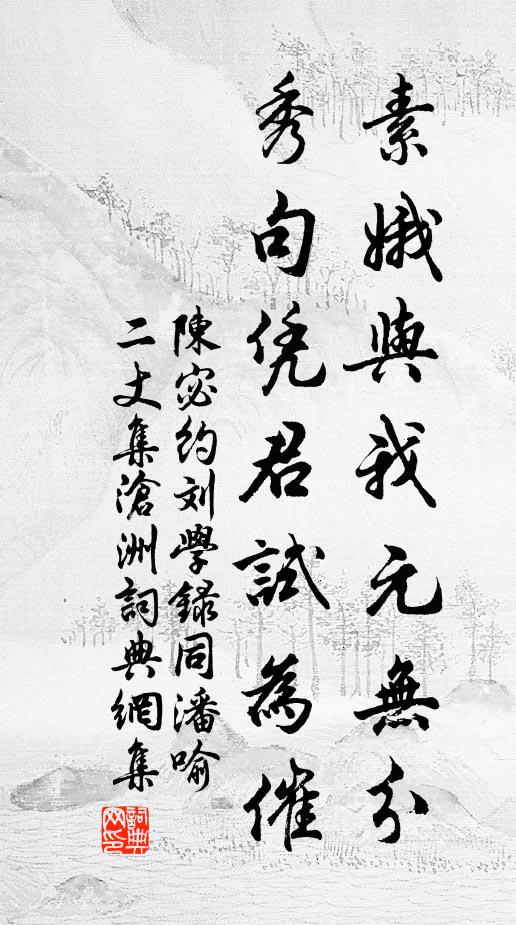 素娥與我元無分
秀句凭君試為催
陳宓約刘學録同潘喻
二丈集滄洲詞典網集
詞典网印